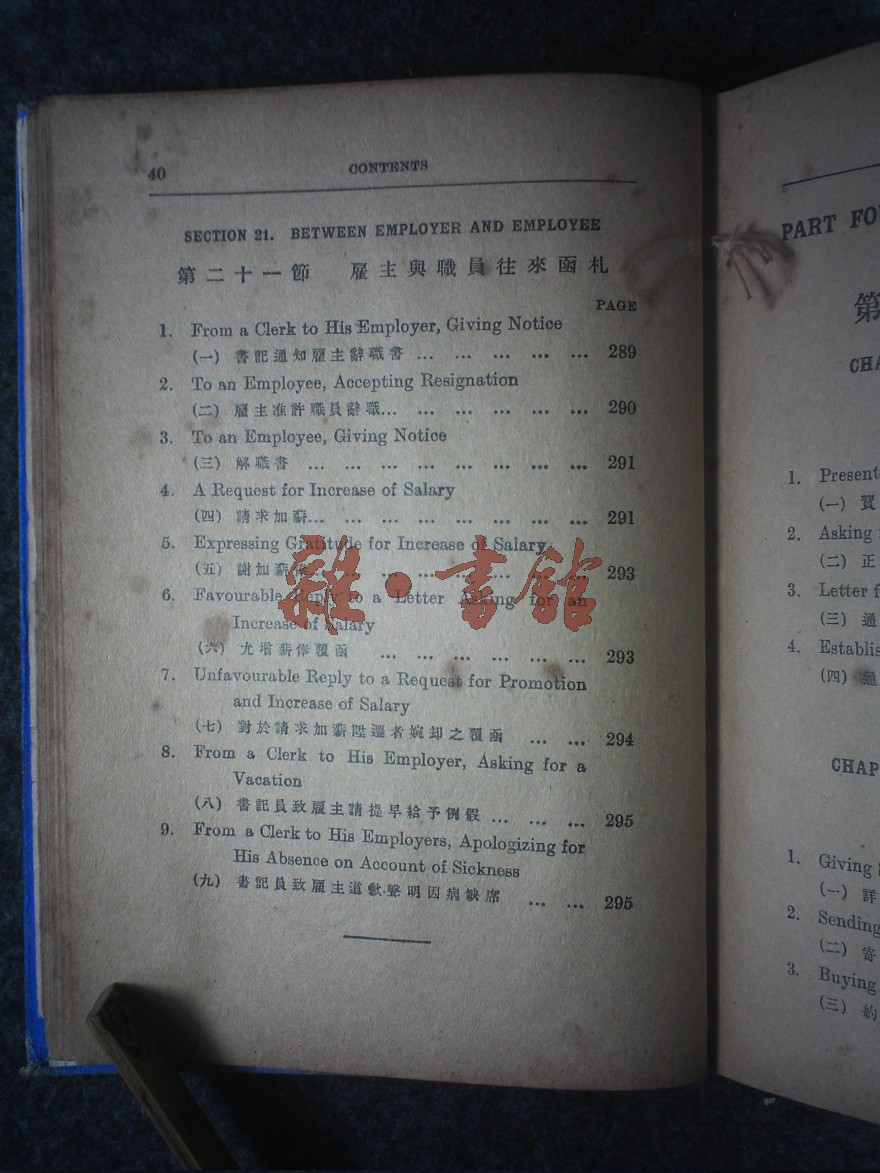 40
CONTENTS
SECTION 21. BETWEEN EMPLOYER AND EMPLOYEE
第二十一節 雇主與職員往來函札
PAGE
1. From a Clerk to His Employer, Giving Notice
(一) 書記通知雇主辭職書 ... ... ... ... ... 289
2. To an Employee, Accepting Resignation
(二) 雇主准許職員辭職... ... ... ... ... ... 290
3. To an Employee, Giving Notice
(三) 解職書 ... ... ... ... ... ... ... ... 291
4. A Request for Increase of Salary
(四) 請求加薪... ... ... ... ... ... ... ... 291
5. Expressing Gratitude for Increase of Salary
(五) 謝加薪俸... ... ... ... ... ... ... ... 293
6. Favourable Reply to a Letter Asking for an
Increase of Salary
(六) 允增薪俸覆函 ... ... ... ... ... ... 293
7. Unfavourable Reply to a Request for Promotion
and Increase of Salary
(七) 對於請求加薪陞遷者婉却之覆函 ... ... 294
8. From a Clerk to His Employer, Asking for a
Vacation
(八) 書記員致雇主請提早給予例假 ... ... ... 295
9. From a Clerk to His Employers, Apologizing for
His Absence on Account of Sickness
(九) 書記員致雇主道歉聲明因病缺席 ... ... 295
雜·書館
PART FO
第
CHA
1. Present
(一) 賀
2. Asking
(二) 正
3. Letter f
(三) 通
4. Establis
(四) 通
CHAP
1. Giving
(一) 詳
2. Sending
(二) 寄
3. Buying
(三) 約